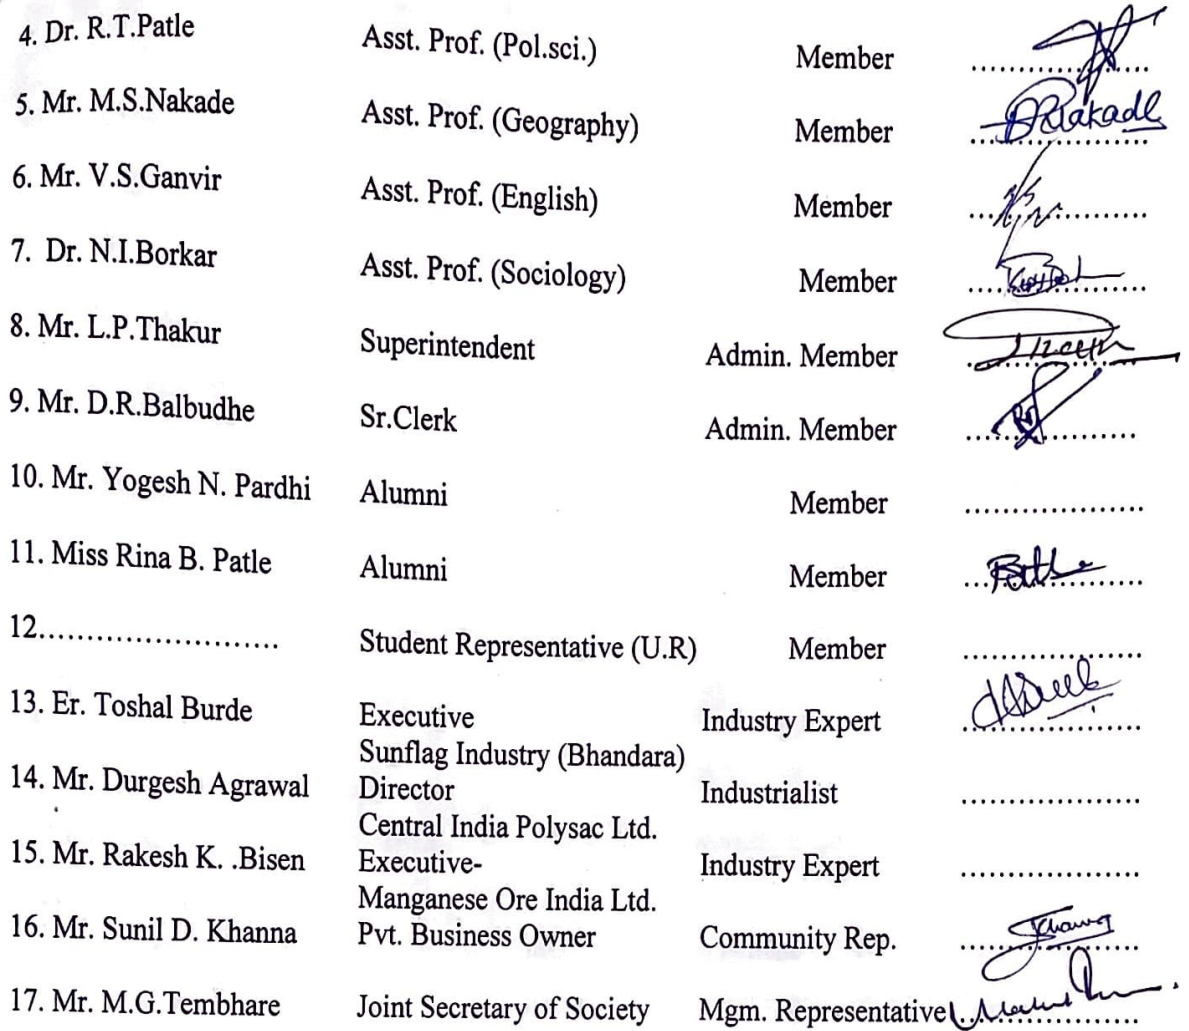 4. Dr. R.T.Patle Asst. Prof. (Pol.sci.) Member ...................
5. Mr. M.S.Nakade Asst. Prof. (Geography) Member ...................
6. Mr. V.S.Ganvir Asst. Prof. (English) Member ...................
7. Dr. N.I.Borkar Asst. Prof. (Sociology) Member ...................
8. Mr. L.P.Thakur Superintendent Admin. Member ...................
9. Mr. D.R.Balbudhe Sr.Clerk Admin. Member ...................
10. Mr. Yogesh N. Pardhi Alumni Member ...................
11. Miss Rina B. Patle Alumni Member ...................
12.......................... Student Representative (U.R) Member ...................
13. Er. Toshal Burde Executive Industry Expert ...................
Sunflag Industry (Bhandara)
14. Mr. Durgesh Agrawal Director Industrialist ...................
Central India Polysac Ltd.
15. Mr. Rakesh K. .Bisen Executive- Industry Expert ...................
Manganese Ore India Ltd.
16. Mr. Sunil D. Khanna Pvt. Business Owner Community Rep. ...................
17. Mr. M.G.Tembhare Joint Secretary of Society Mgm. Representative ...................